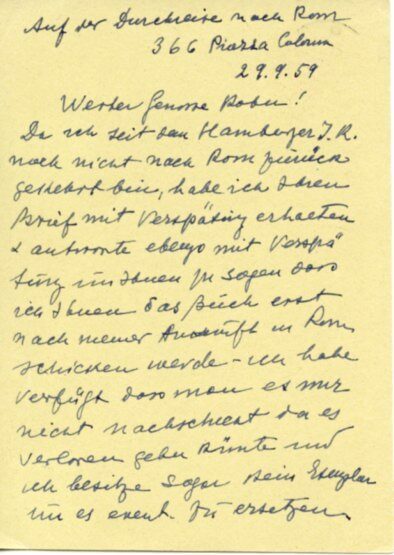 Auf der Durchreise nach Rom
366 Piazza Colonna
29.9.59
Werter Genosse
Da ich seit dem Hamburger I.K.
noch nicht nach Rom zurück
gekehrt bin, habe ich Ihren
Brief mit Verspätung erhalten
& antworte ebenso mit Verspä
tung um Ihnen zu sagen dass
ich Ihnen das Buch erst
nach meiner Ankunft in Rom
schicken werde - ich habe
verfügt dass man es mir
nicht nachschickt da es
verloren gehn könnte und
ich besitze sogar kein Exemplar
um es event. zu ersetzen